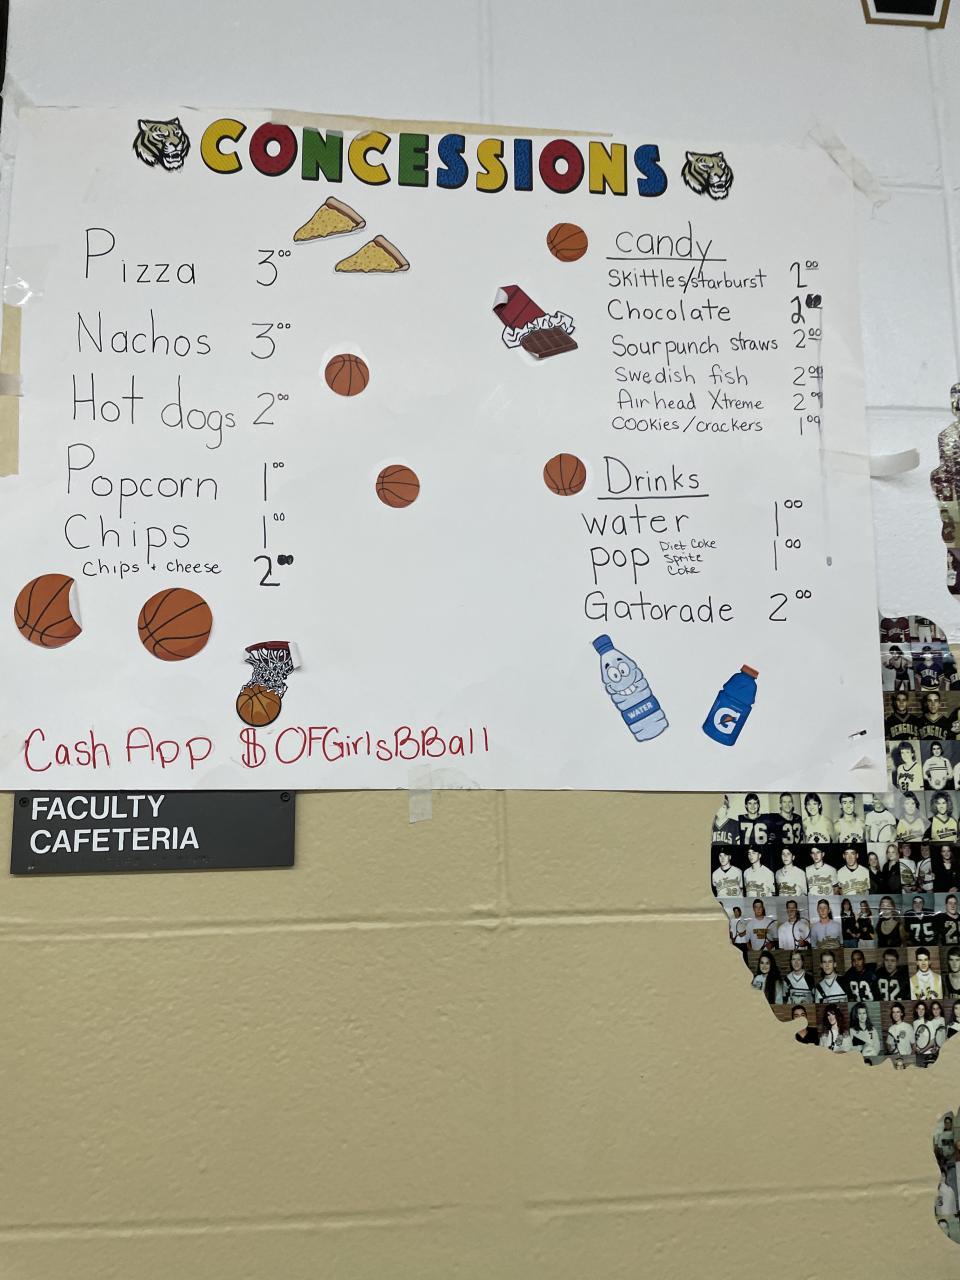 CONCESSIONS
Pizza 3.00
Nachos 3.00
Hot dogs 2.00
Popcorn 1.00
Chips 1.00
Chips + cheese 2.00
Candy
Skittles/starburst 2.00
Chocolate 2.00
Sour punch straws 2.00
Swedish fish 2.00
Air head Xtreme 2.00
Cookies/crackers 1.00
Drinks
water 1.00
pop Diet Coke Sprite Coke 1.00
Gatorade 2.00
WATER
G
Cash App $OFGirlsBBall
FACULTY
CAFETERIA
BENGALS BENGALS
76 33
75
93 92